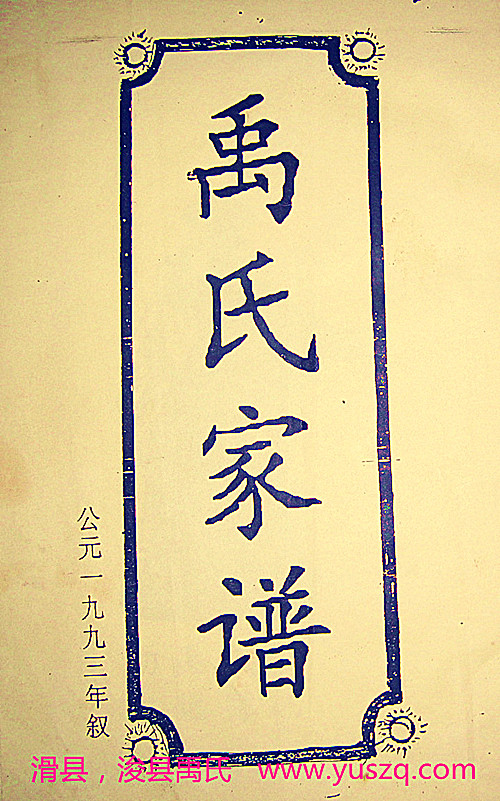 禹氏家谱
公元一九九三年叙
滑县，浚县禹氏 www.yuszq.com